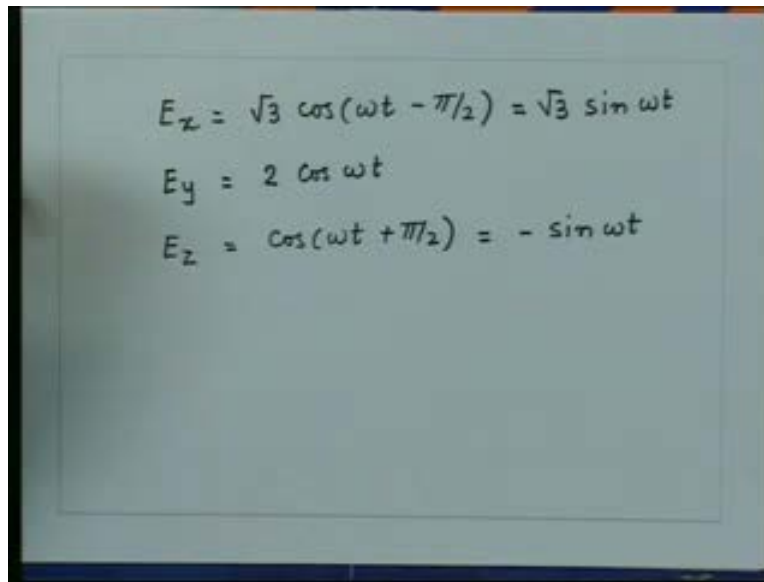 Ex = √3 cos(ωt - π/2) = √3 sin ωt
Ey = 2 cos ωt
Ez = cos(ωt + π/2) = - sin ωt